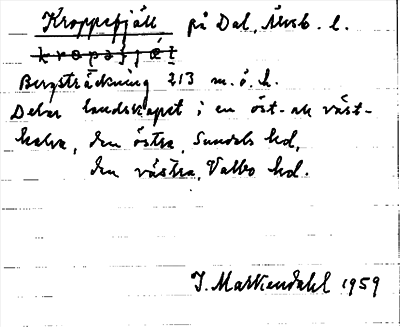 Kroppefjäll på Dal, Älvsb. l.
Bergsträckning 213 m.ö.h.
Delar landskapet i en öst- och väst-
halva, den östra, Sundals hd,
den västra, Valbo hd.
J. Martiendahl 1959